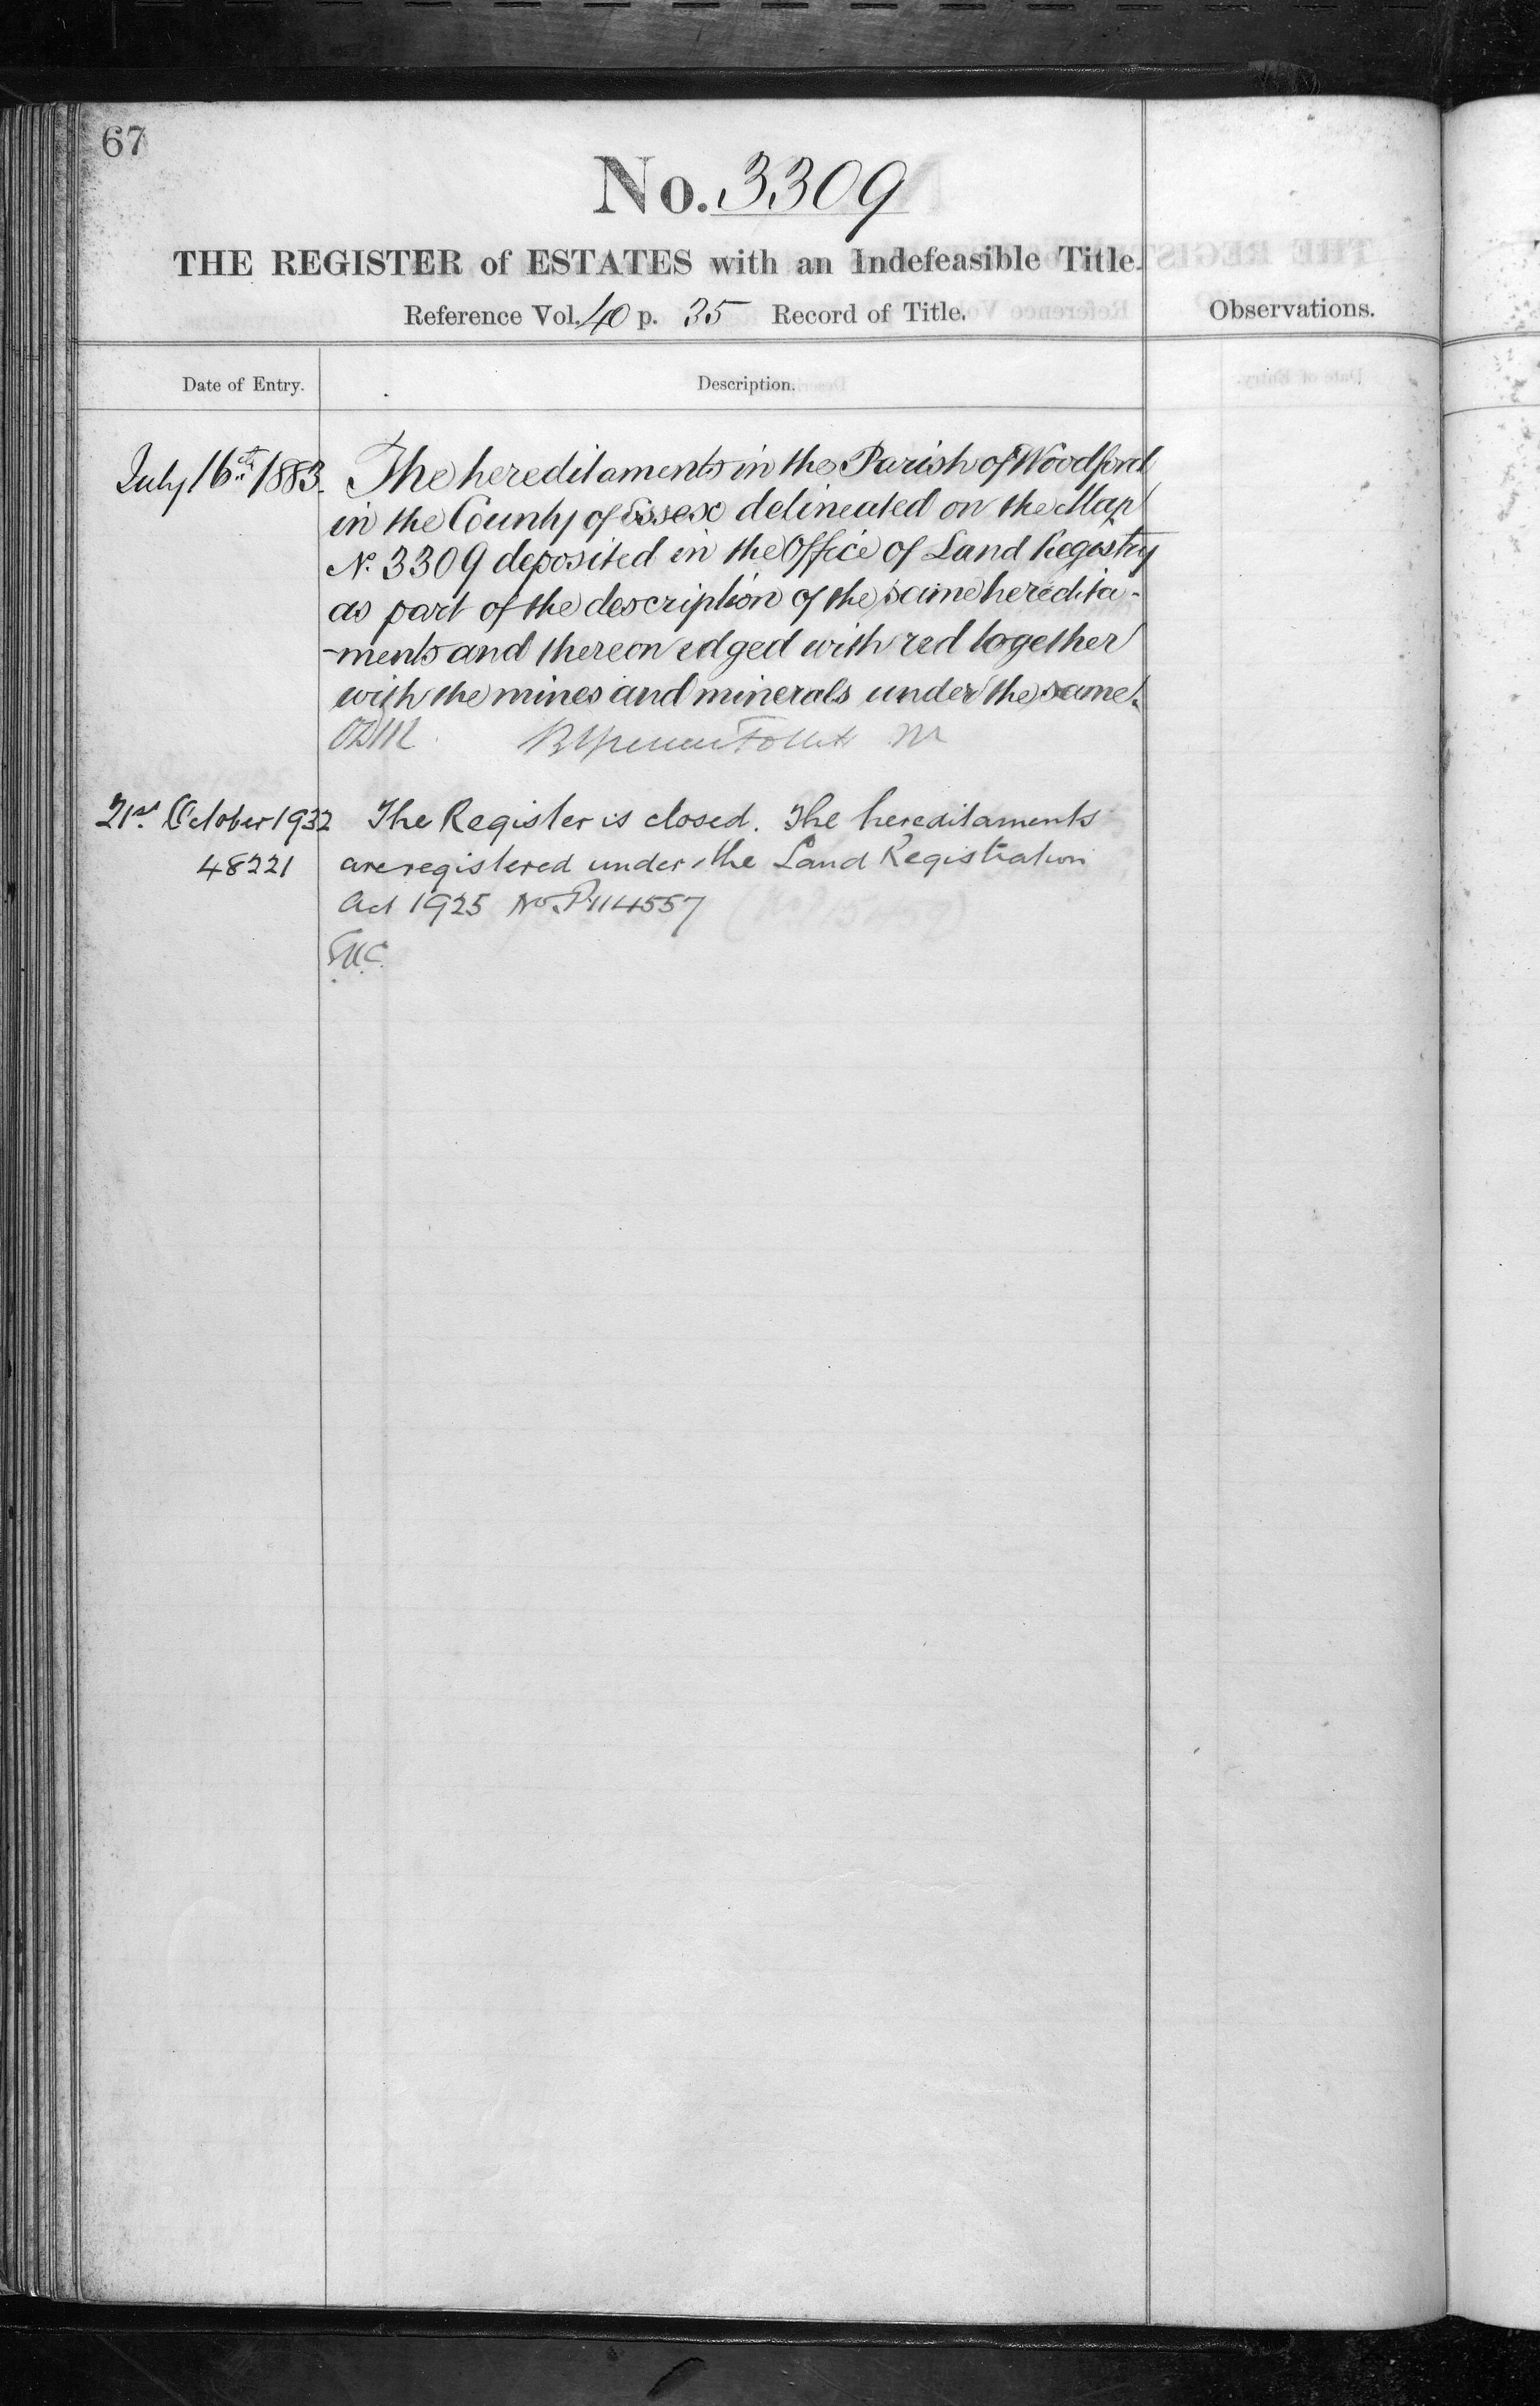 67
No. 3309
THE REGISTER of ESTATES with an Indefeasible Title.
Reference Vol. 40 p. 35 Record of Title.
Observations.
Date of Entry.
Description.
July 16th 1883. The hereditaments in the Parish of Woodford
in the County of Essex delineated on the Map
No. 3309 deposited in the Office of Land Registry
as part of the description of the same heredita-
-ments and thereon edged with red together
with the mines and minerals under the same.
21st October 1932 The Register is closed. The hereditaments
48221 are registered under the Land Registration
Act 1925 No. P114557